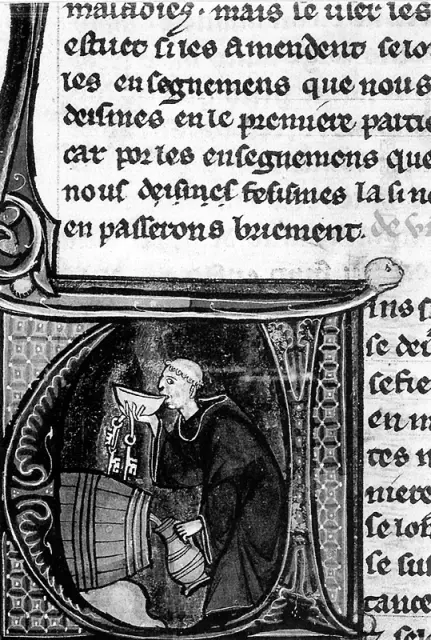 maladies. mais se vser les
estuet siles amendent selo
les ensegnemens que nous
deismes en le premiere partie
car por les ensegnemens que
nous deismes
en passerons briement. de vi
ins s
se dei
sefie
en m
tes n
niere
se lob
se sus
tance